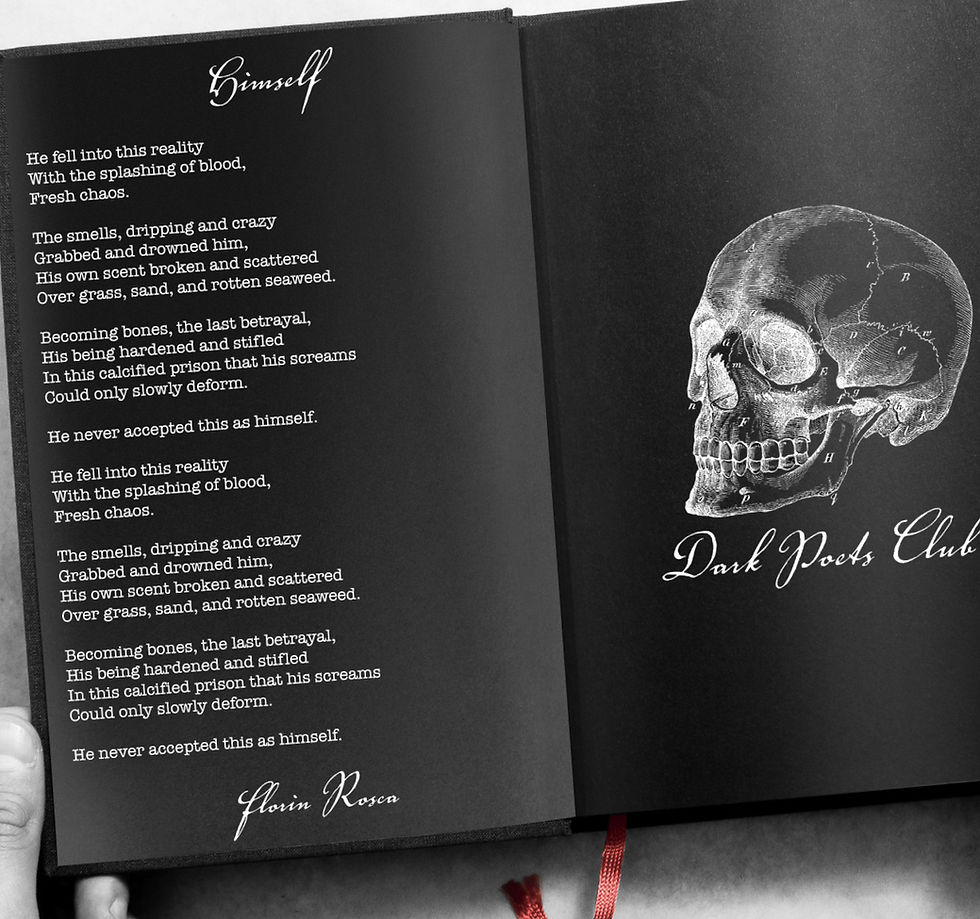 Himself
He fell into this reality
With the splashing of blood,
Fresh chaos.
The smells, dripping and crazy
Grabbed and drowned him,
His own scent broken and scattered
Over grass, sand, and rotten seaweed.
Becoming bones, the last betrayal,
His being hardened and stifled
In this calcified prison that his screams
Could only slowly deform.
He never accepted this as himself.
He fell into this reality
With the splashing of blood,
Fresh chaos.
The smells, dripping and crazy
Grabbed and drowned him,
His own scent broken and scattered
Over grass, sand, and rotten seaweed.
Becoming bones, the last betrayal,
His being hardened and stifled
In this calcified prison that his screams
Could only slowly deform.
He never accepted this as himself.
Florin Rosca
B
C
D
E
F
H
Dark Poets Club